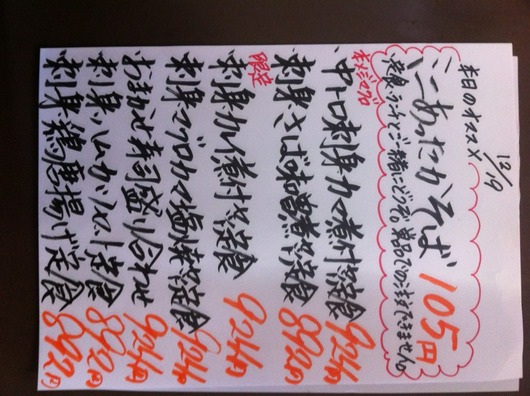 12/19
本日のオススメ
ミニあったかそば 105円
定食、ランチご一緒にどうぞ。単品での注文できません。
本メジマグロ
中トロ刺身カマ煮付け定食 924円
刺身さば味噌煮定食 892円
限定
刺身カレイ煮付け定食 924円
刺身マグロカマ塩焼定食 924円
おまかせ寿司盛り合わせ 924円
刺身ハムカツ定食 892円
刺身鶏唐揚げ定食 892円